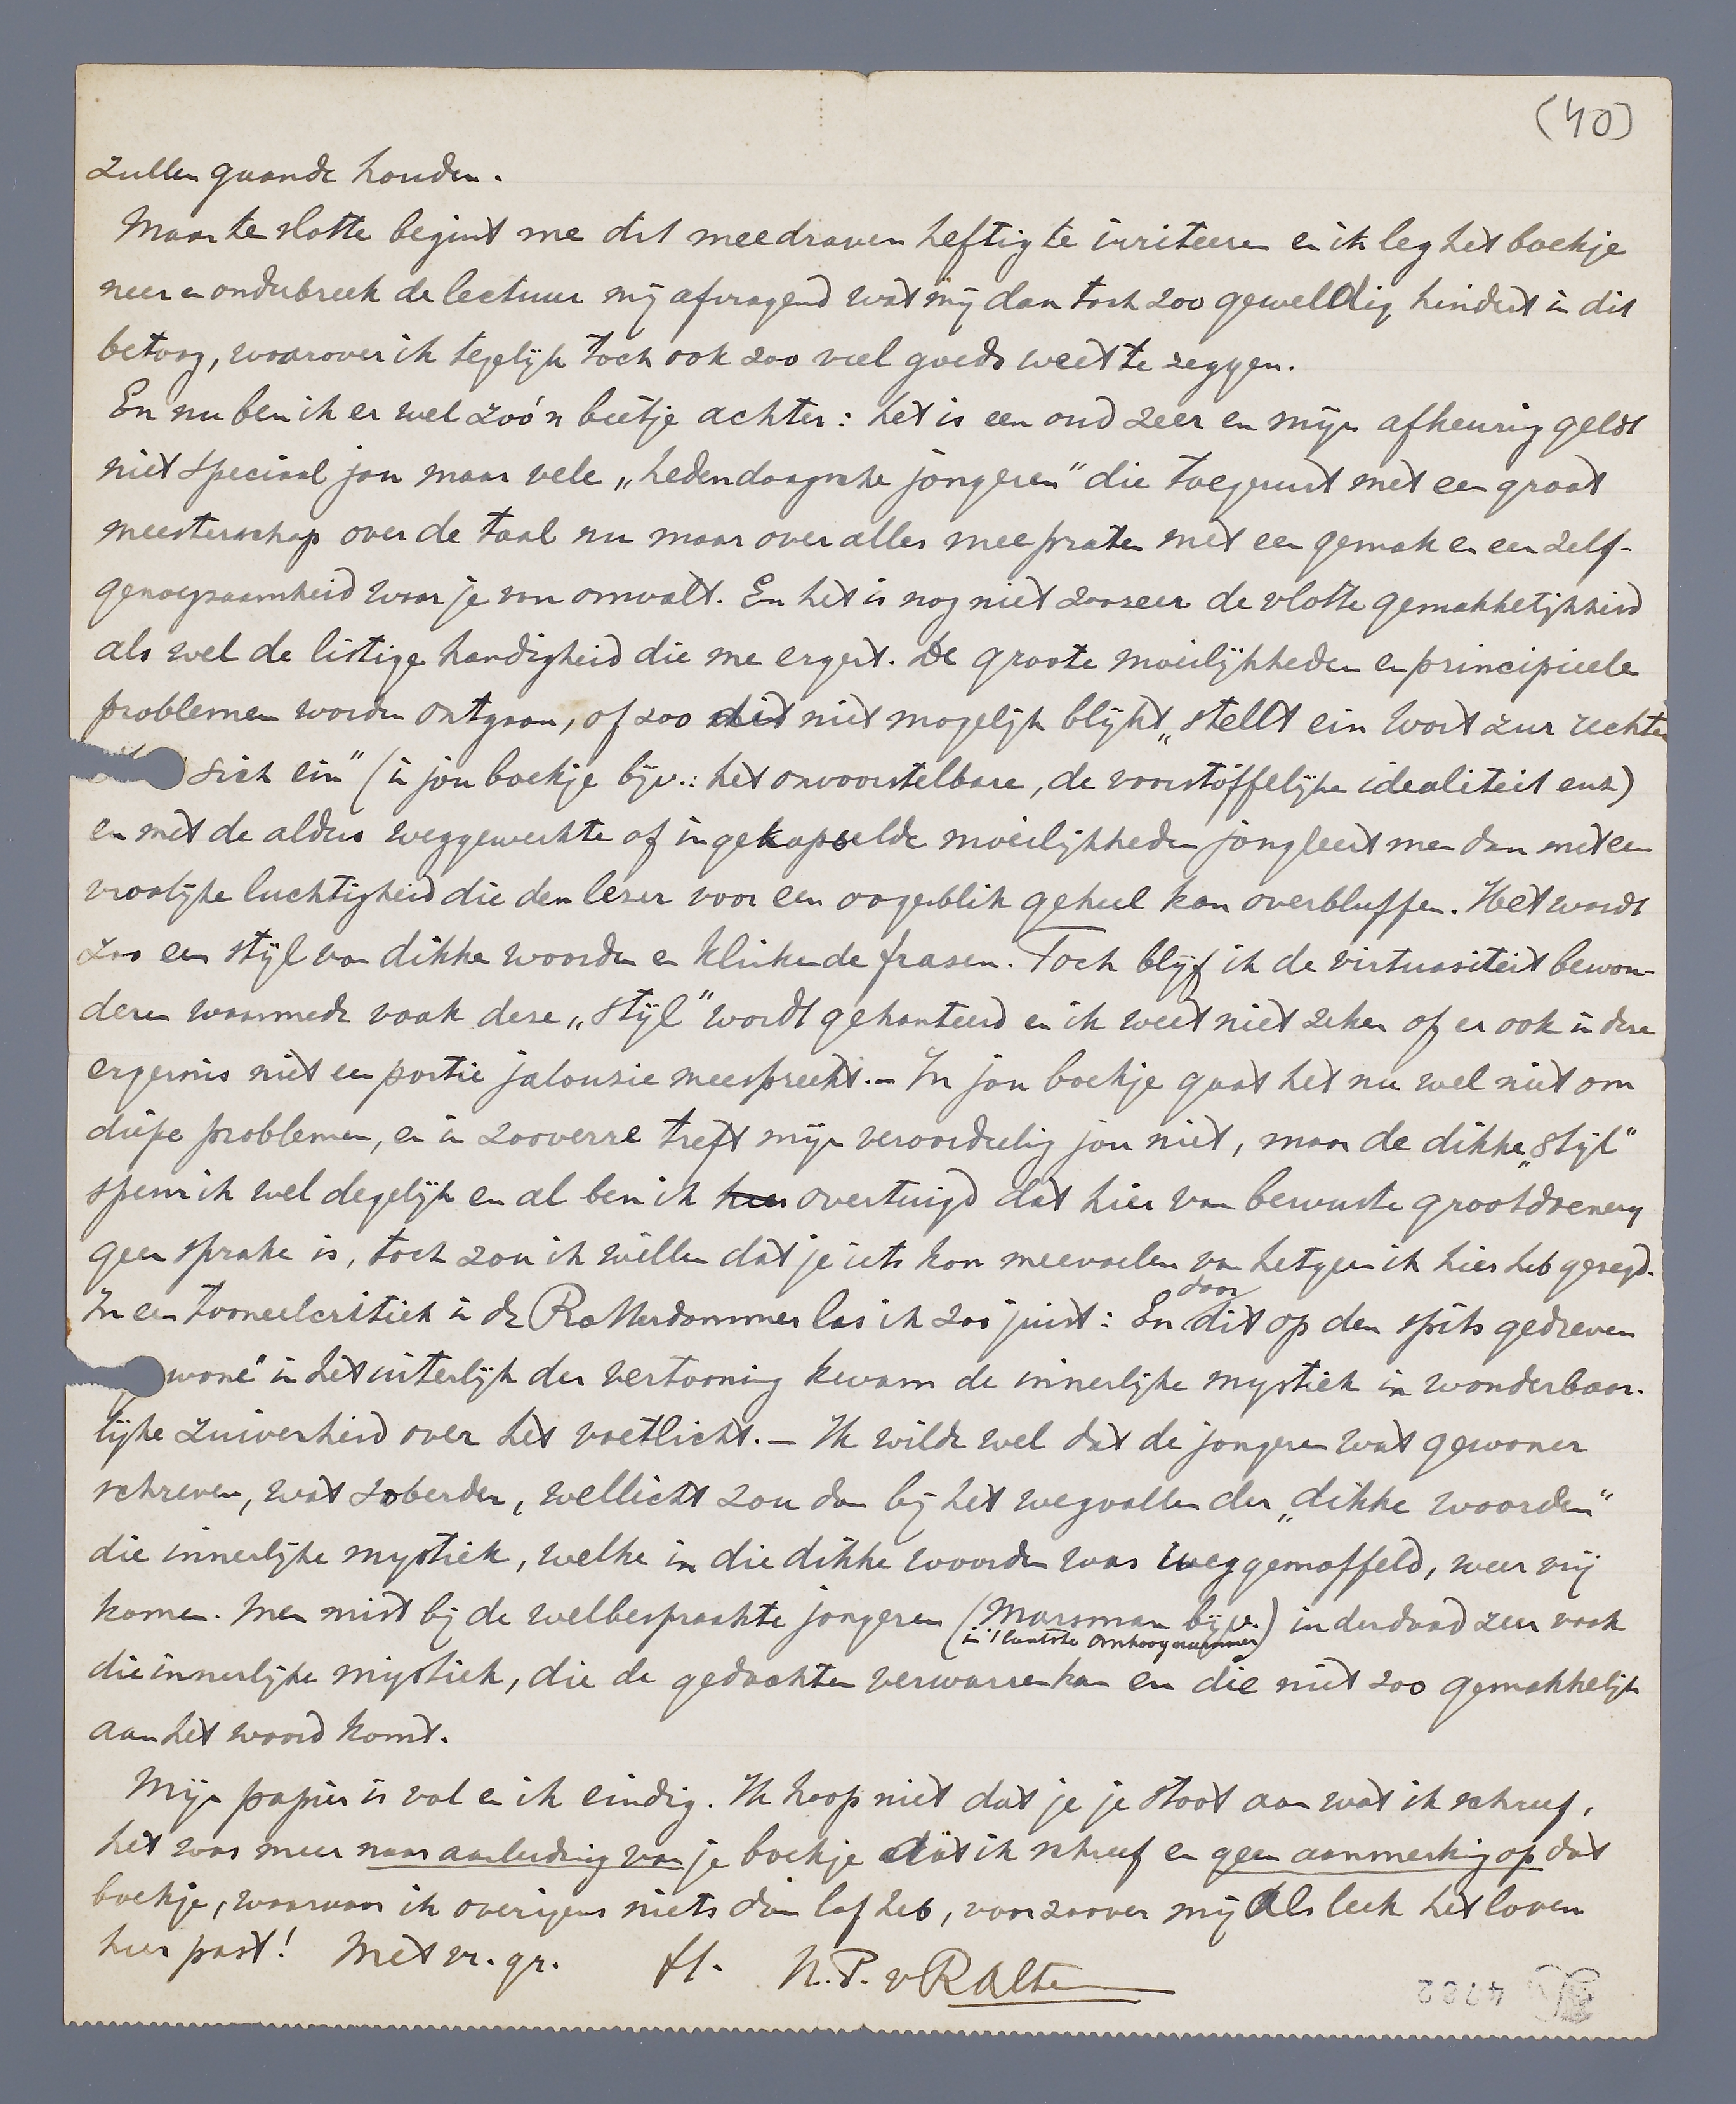 (40)
zullen gaande houden.
Maar ten slotte begint me dit meedraven heftig te irriteeren en ik leg het boekje
neer en onderbreek de lectuur mij afvragend wat mij dan toch zoo geweldig hindert in dit
betoog, waarover ik tegelijk toch ook zoo veel goeds weet te zeggen.
En nu ben ik er wel zóó'n beetje achter: het is een oud zeer en mijn afkeuring geldt
niet speciaal jou maar vele „hedendaagsche jongeren" die toegerust met een groot
meesterschap over de taal nu maar over alles meepraten met een gemak en een zelf-
genoegzaamheid waar je van omvalt. En het is nog niet zoozeer de vlotte gemakkelijkheid
als wel de listige handigheid die me ergert. De groote moeilijkheden en principieele
problemen worden ontgaan, of zoo dit niet mogelijk blijkt „stellt ein Wort zur rechten
sich ein" (in jou boekje bijv.: het onvoorstelbare, de voorstoffelijke idealiteit enz)
en met de aldus weggewerkte of ingekapselde moeilijkheden jongleert men dan met een
vroolijke luchtigheid die den lezer voor een oogenblik geheel kan overbluffen. Het wordt
zoo een stijl van dikke woorden en klinkende frasen. Toch blijf ik de virtuositeit bewon-
deren waarmede vaak deze „stijl" wordt gehanteerd en ik weet niet zeker of er ook in deze
ergernis niet een portie jalouzie meespreekt. – In jou boekje gaat het nu wel niet om
diepe problemen, en in zooverre treft mijn veroordeeling jou niet, maar de dikke „stijl"
speur ik wel degelijk en al ben ik hier overtuigd dat hier van bewuste grootdoenerij
geen sprake is, toch zou ik willen dat je iets kon meevoelen van hetgeen ik hier heb gezegd.
In een tooneelcritiek in de Rotterdammer las ik zoo juist: En door dit op den spits gedreven
wone" in het uiterlijk der vertooning kwam de innerlijke mystiek in wonderbaar-
lijke zuiverheid over het voetlicht. – Ik wilde wel dat de jongeren wat gewoner
schreven, wat soberder, wellicht zou dan bij het wegvallen der „dikke woorden"
die innerlijke mystiek, welke in die dikke woorden was weggemoffeld, weer vrij
komen. Men mist bij de welbespraakte jongeren (Marsman bijv. in 't laatste Omhoog nummer) inderdaad zeer vaak
die innerlijke mystiek, die de gedachten verwarren kan en die niet zoo gemakkelijk
aan het woord komt.
Mijn papier is vol en ik eindig. Ik hoop niet dat je je stoot aan wat ik schreef,
het was meer naar aanleiding van je boekje dat ik schreef en geen aanmerking op dat
boekje, waarvan ik overigens niets dan lof heb, voor zoover mij als leek het loven
hier past! Met vr. gr. H. N.P. v R Alten
4782